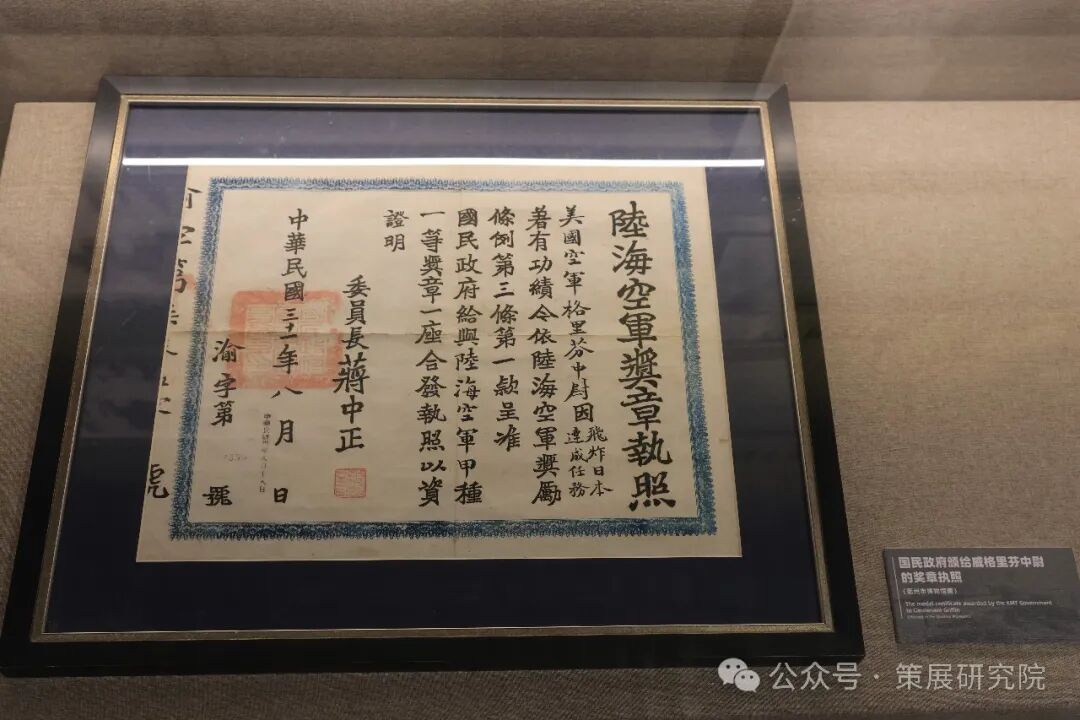 陸海空軍獎章執照
美國空軍格里芬中尉因飛炸日本達成任務
著有功績令依陸海空軍獎勵
條例第三條第一款呈准
國民政府給與陸海空軍甲種
一等獎章一座合發執照以資
證明
委員長蔣中正
中華民國三十一年八月 日
渝字第 號
国民政府颁给威格里芬中尉
的奖章执照
(衢州市博物馆藏)
The medal certificate awarded by the KMT Government
to Lieutenant Griffin
公众号·策展研究院